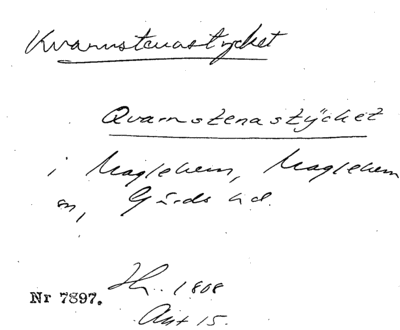 Kvarnstenastycket
Qvarnstenastÿcket
i Maglehem, Maglehem
sn, Gärds hd.
Nr 7897. Hy. 1808
Akt 15.